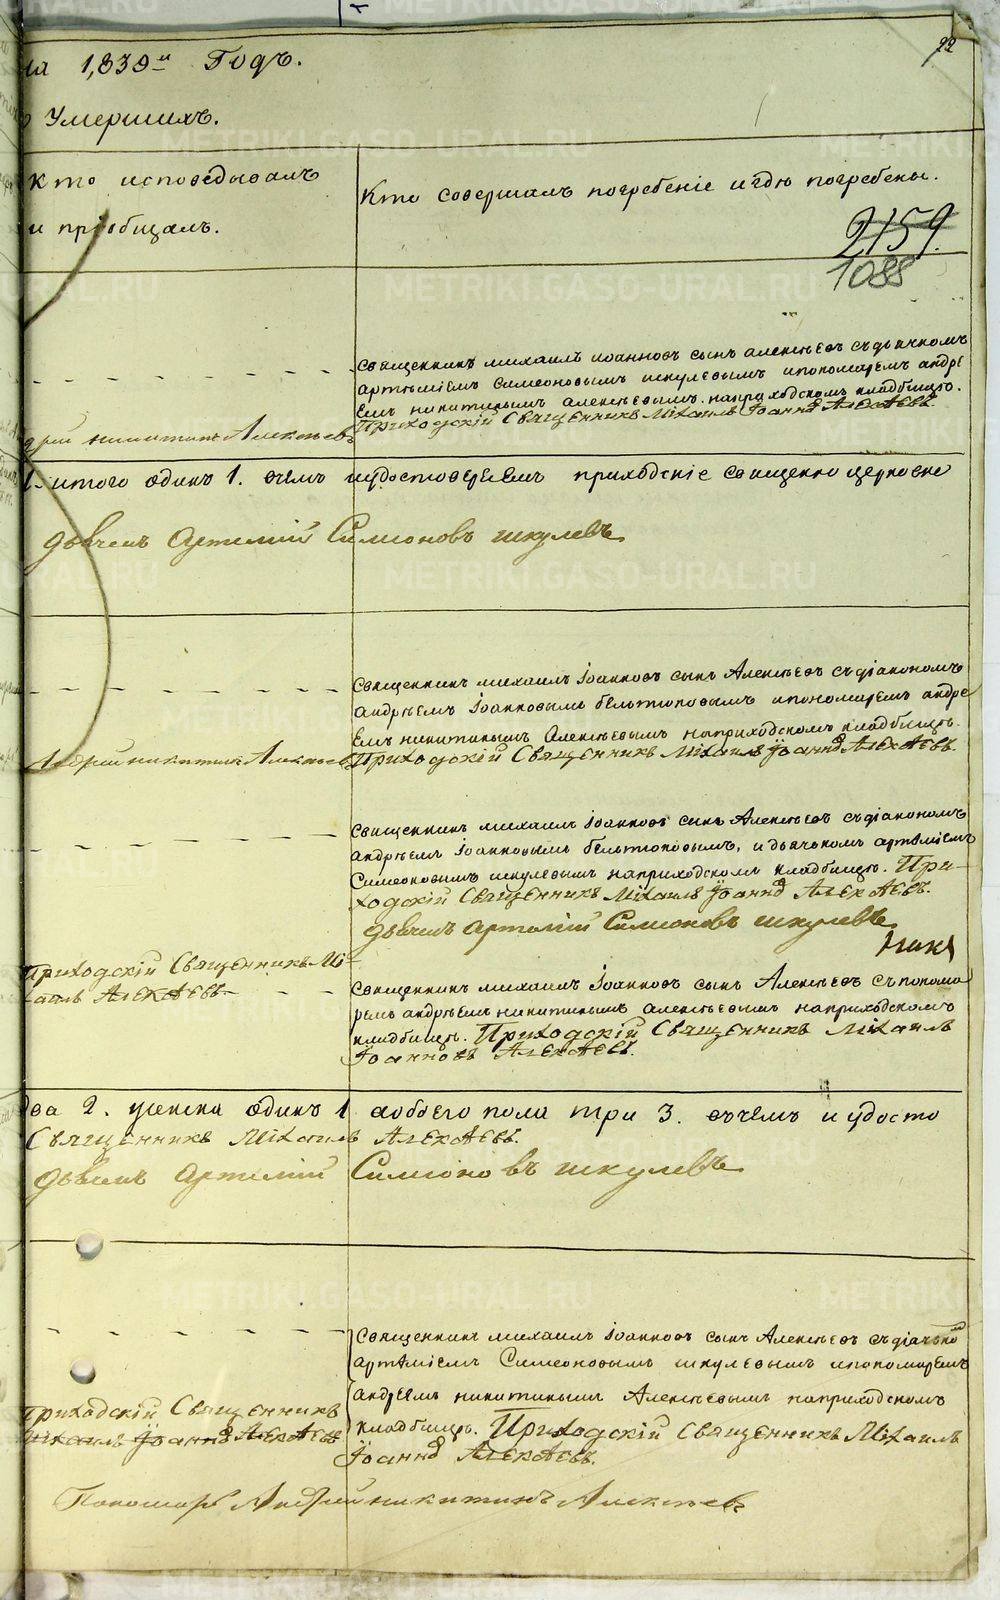 на 1,839й Годъ.
22
Умершихъ.
Кто исповѣдывалъ
и пріобщалъ.
Кто совершалъ погребеніе и гдѣ погребены.
2159.
1088
Священникъ михаилъ иоанновъ сынъ алексѣевъ съ дьячкомъ
артѣміемъ Симеоновымъ шкулевымъ и пономаремъ андре
емъ никитинымъ алексѣевымъ. на приходскомъ кладбищѣ.
Приходскій Священникъ Міхаилъ Іоаннов Алекѣевъ.
дрей никитинъ Алексѣевъ
1. итого одинъ 1. въчемъ и удостоверяемъ приходскіе священно церковно
дьячекъ Артемій Симионовъ шкулевъ
Священникъ михаилъ Іоанновъ сынъ Алексѣевъ съ діакономъ
андрѣемъ Іоанновымъ бельтюковымъ и пономаремъ андре
Емъ никитинымъ Алексѣевымъ на приходскомъ кладбищѣ.
Приходскій Священникъ Міхаилъ Іоаннов Алекѣевъ.
Андрей никитинъ Алексѣевъ
Священникъ михаилъ Іоанновъ сынъ Алексѣевъ съ діакономъ
андрѣемъ Іоанновымъ бельтюковымъ, и дьячкомъ артѣміемъ
Симеоновымъ шкулевымъ на приходскомъ кладбищѣ. При-
ходскій Священникъ Міхаилъ Іоаннов Алекѣевъ.
дьячекъ Артемій Симионовъ шкулевъ
Приходскій Священникъ Мі-
хаилъ Алекѣевъ.
Священникъ михаилъ Іоанновъ сынъ Алексѣевъ съ понома
ремъ андрѣемъ никитинымъ алексѣевымъ на приходскомъ
кладбищѣ. Приходскій Священникъ Міхаилъ
Іоанновъ Алекѣевъ.
два 2. женска один 1 а обоего пола три 3. въчемъ и удосто
Священникъ Міхаилъ Алекѣевъ.
дьячекъ Артемій Симионовъ шкулевъ
Священникъ михаилъ Іоанновъ сынъ Алексѣевъ съ діачькомъ
артѣміемъ Симеоновымъ шкулевымъ и пономаремъ
андреемъ никитинымъ Алексѣевымъ на приходскомъ
кладбищѣ. Приходскій Священникъ Міхаилъ
Іоаннов Алекѣевъ.
Приходскій Священникъ
Міхаилъ Іоаннов Алекѣевъ
Пономарь Андрей никитинъ Алексѣевъ
METRIKI.GASO-URAL.RU